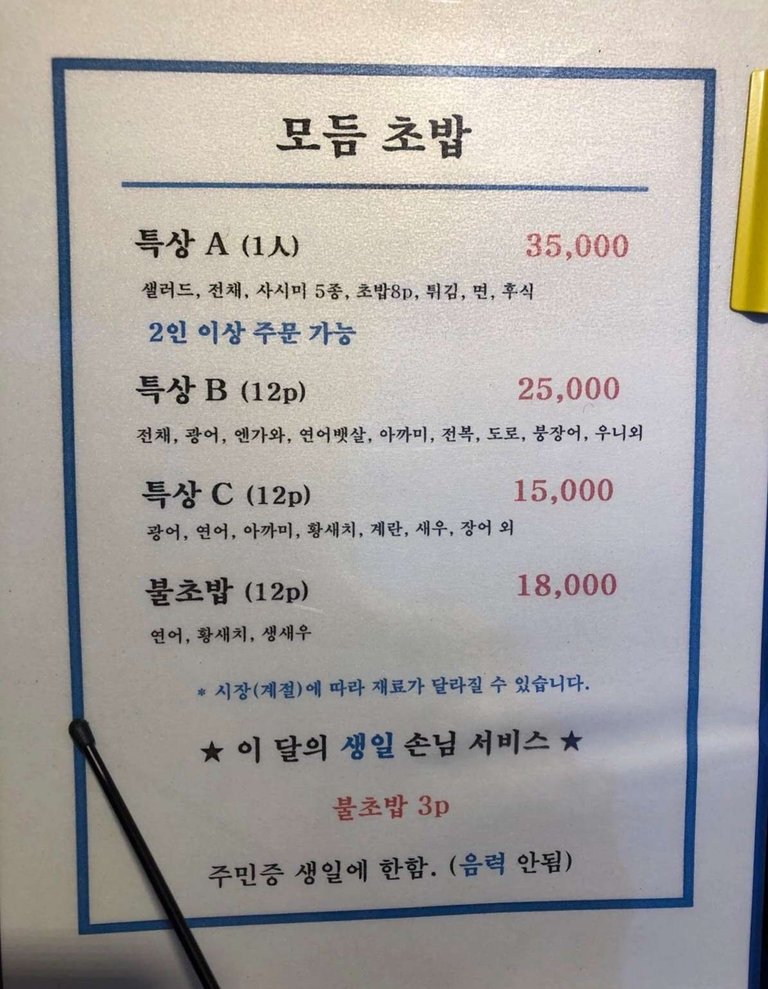 모듬 초밥
특상 A (1人) 35,000
샐러드, 전채, 사시미 5종, 초밥8p, 튀김, 면, 후식
2인 이상 주문 가능
특상 B (12p) 25,000
전채, 광어, 엔가와, 연어뱃살, 아까미, 전복, 도로, 붕장어, 우니외
특상 C (12p) 15,000
광어, 연어, 아까미, 황새치, 계란, 새우, 장어 외
불초밥 (12p) 18,000
연어, 황새치, 생새우
* 시장(계절)에 따라 재료가 달라질 수 있습니다.
★ 이 달의 생일 손님 서비스 ★
불초밥 3p
주민증 생일에 한함. (음력 안됨)